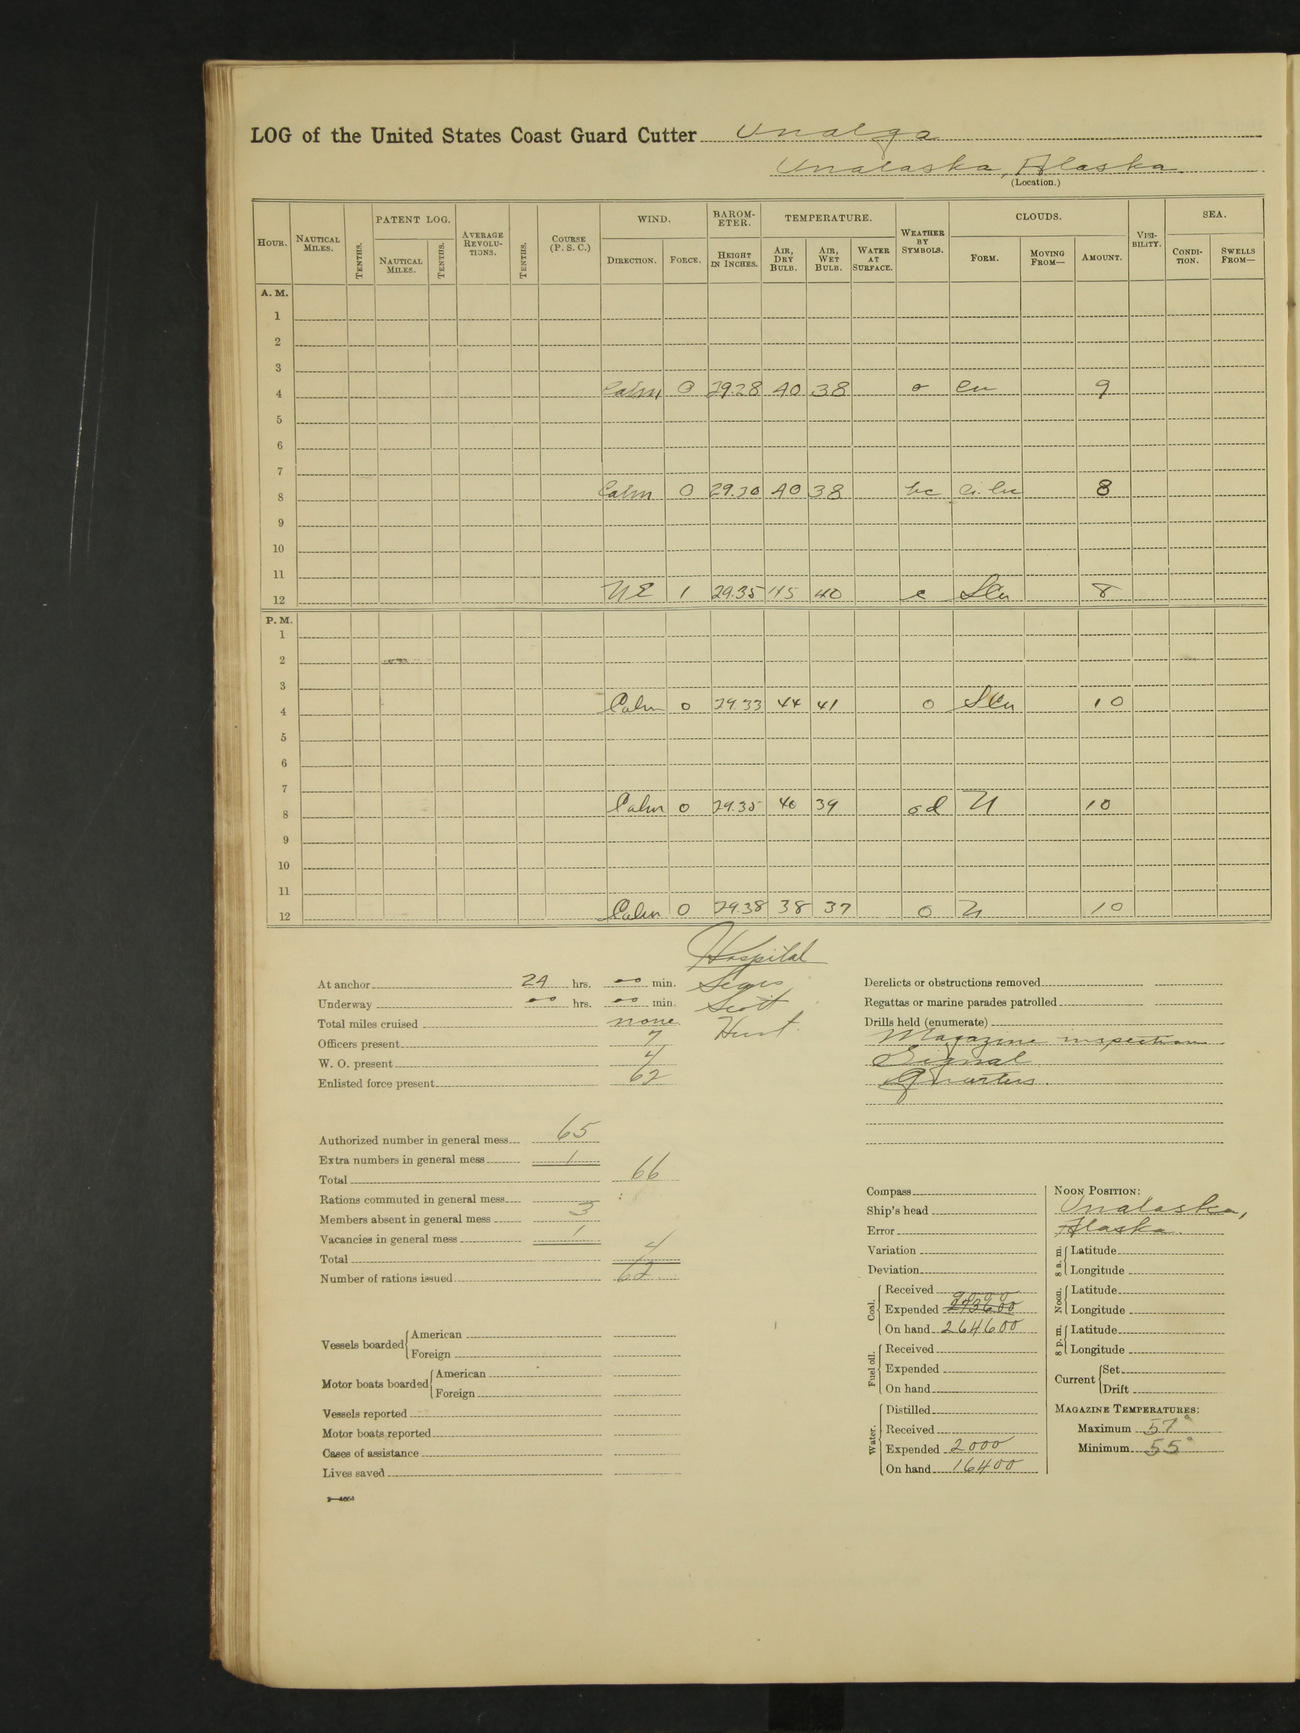 LOG of the United States Coast Guard Cutter Unalga
Unalaska, Alaska
(Location.)
HOUR. NAUTICAL MILES. TENTHS. PATENT LOG. NAUTICAL MILES. TENTHS. AVERAGE REVOLUTIONS. TENTHS. COURSE (P. S. C.) WIND. DIRECTION. FORCE. BAROMETER. HEIGHT IN INCHES. TEMPERATURE. AIR, DRY BULB. AIR, WET BULB. WATER AT SURFACE. WEATHER BY SYMBOLS. CLOUDS. FORM. MOVING FROM— AMOUNT. VISIBILITY. SEA. CONDITION. SWELLS FROM—
A. M.
1
2
3
4 Calm 0 29.28 40 38 o cu 9
5
6
7
8 Calm 0 29.30 40 38 bc Ci. Cu 8
9
10
11
12 NE 1 29.35 45 40 c SCu 8
P. M.
1
2
3
4 Calm 0 29.33 44 41 o SCu 10
5
6
7
8 Calm 0 29.35 40 39 od N 10
9
10
11
12 Calm 0 29.38 38 37 o N 10
Hospital
At anchor 24 hrs. 00 min.
Underway 00 hrs. 00 min. Scott
Total miles cruised none Hunt
Officers present 7
W. O. present 4
Enlisted force present 62
Authorized number in general mess 65
Extra numbers in general mess 1
Total 66
Rations commuted in general mess
Members absent in general mess 3
Vacancies in general mess 1
Total 4
Number of rations issued 62
Vessels boarded American
Foreign
Motor boats boarded American
Foreign
Vessels reported
Motor boats reported
Cases of assistance
Lives saved
Derelicts or obstructions removed
Regattas or marine parades patrolled
Drills held (enumerate)
Magazine inspection
Signal
Quarters
Compass
Ship's head
Error
Variation
Deviation
Coal. Received
Expended
On hand 264600
Fuel oil. Received
Expended
On hand
Water. Distilled
Received
Expended 2000
On hand 16400
NOON POSITION:
Unalaska,
Alaska.
8 a. m. Latitude
Longitude
Noon. Latitude
Longitude
8 p. m. Latitude
Longitude
Current Set
Drift
MAGAZINE TEMPERATURES:
Maximum 57°
Minimum 55°